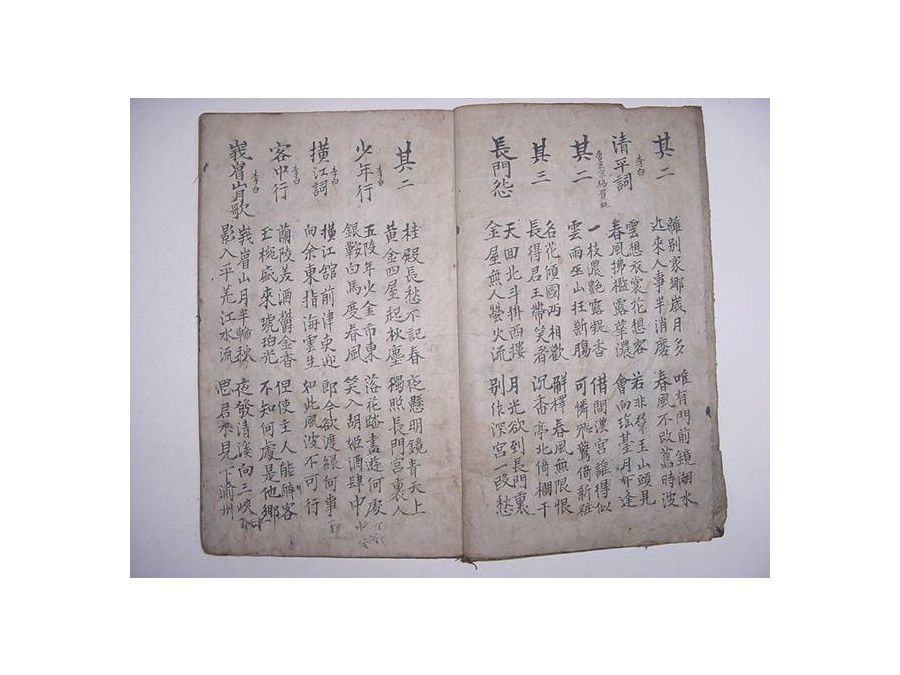 其二
離別家鄉歲月多
近來人事半消磨
唯有門前鏡湖水
春風不改舊時波
清平詞
李白
雲想衣裳花想容
春風拂檻露華濃
若非群玉山頭見
會向瑤臺月下逢
其二
一枝濃艶露凝香
雲雨巫山枉斷腸
借問漢宮誰得似
可憐飛鷰倚新粧
其三
名花傾國兩相歡
長得君王帶笑看
解釋春風無限恨
沉香亭北倚欄干
長門怨
天回北斗掛西樓
金屋無人螢火流
月光欲到長門裏
別作深宮一段愁
其二
桂殿長愁不記春
黃金四屋起秋塵
夜懸明鏡青天上
獨照長門宮裏人
少年行
李白
五陵年少金市東
銀鞍白馬度春風
落花踏盡遊何處
笑入胡姬酒肆中
橫江詞
李白
橫江舘前津吏迎
向余東指海雲生
郎今欲渡緣何事
如此風波不可行
客中行
李白
蘭陵美酒鬱金香
玉椀盛來琥珀光
但使主人能醉客
不知何處是他鄉
峩眉山月歌
李白
峩眉山月半輪秋
影入平羌江水流
夜發清溪向三峽
思君不見下渝州